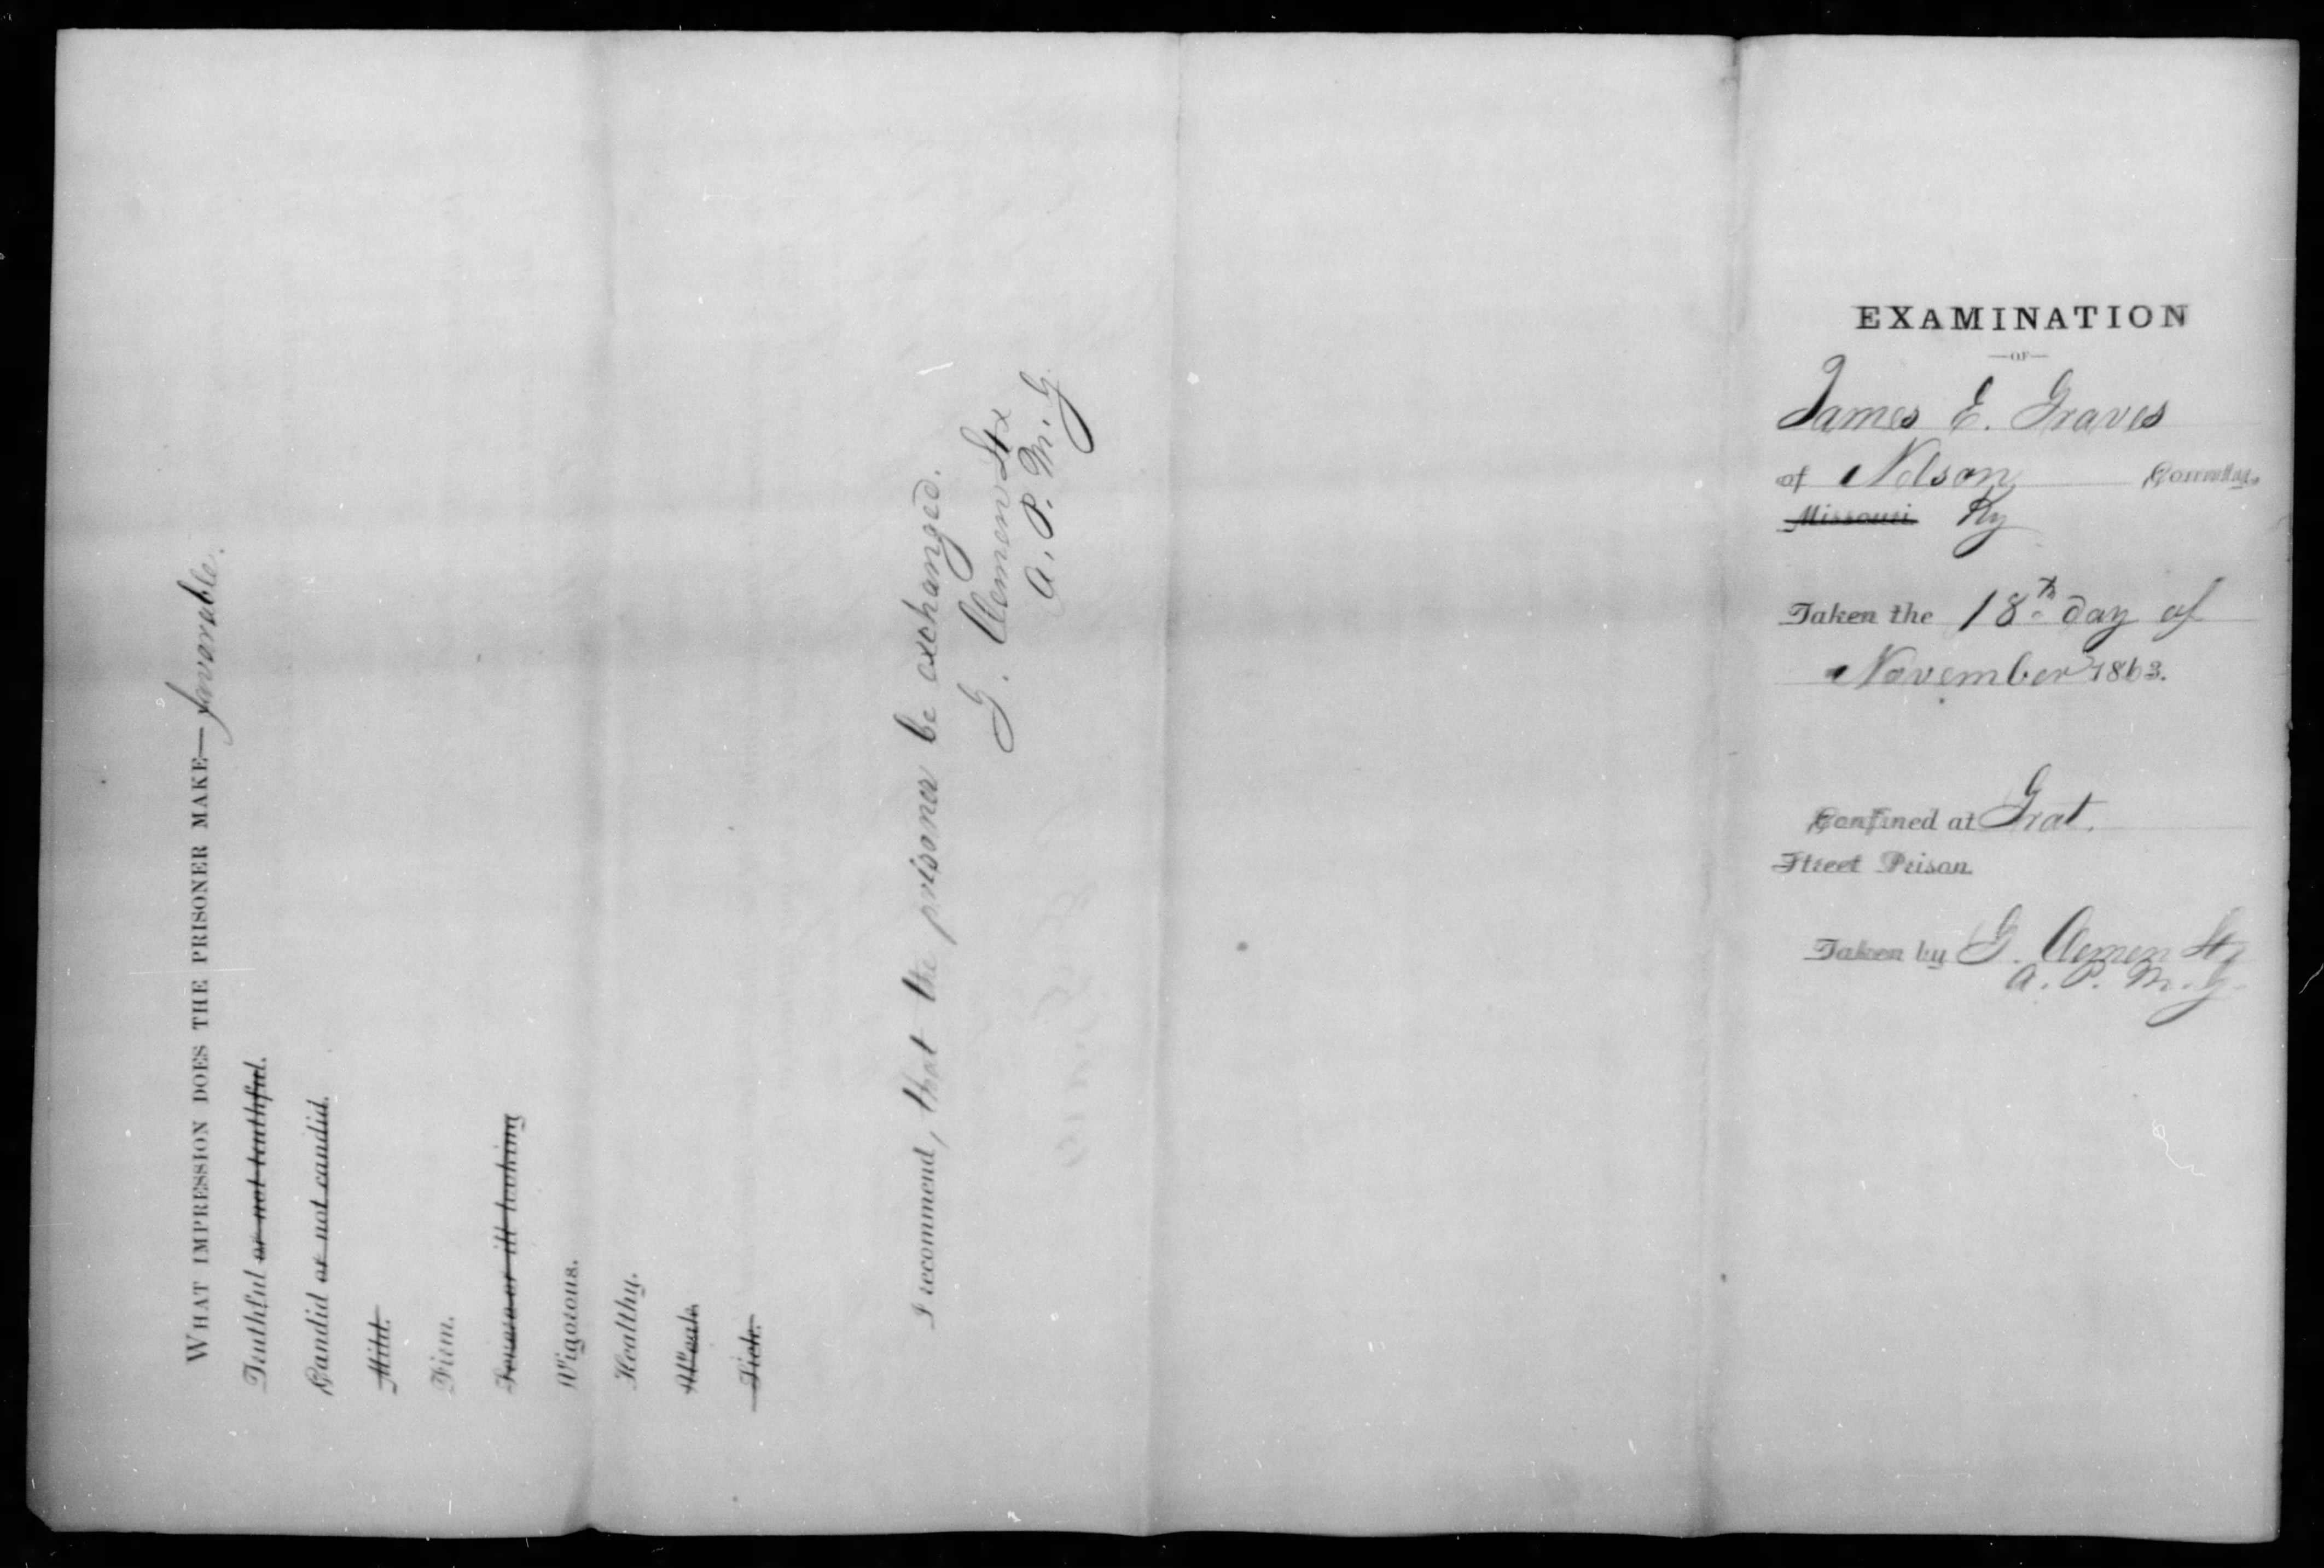 WHAT IMPRESSION DOES THE PRISONER MAKE— favorable.
Truthful or not truthful.
Candid or not candid.
Mild.
Firm.
Severe or ill looking
Vigorous.
Healthy.
Weak.
Sick.
I recommend, that the prisoner be exchanged.
G. Clemen
A. P. M. G.
EXAMINATION
—OF—
James E. Graves
of Nelson County,
Missouri Ky
Taken the 18th day of
November 1863.
Confined at Grat.
Street Prison.
Taken by G. Clemen
A. P. M. G.